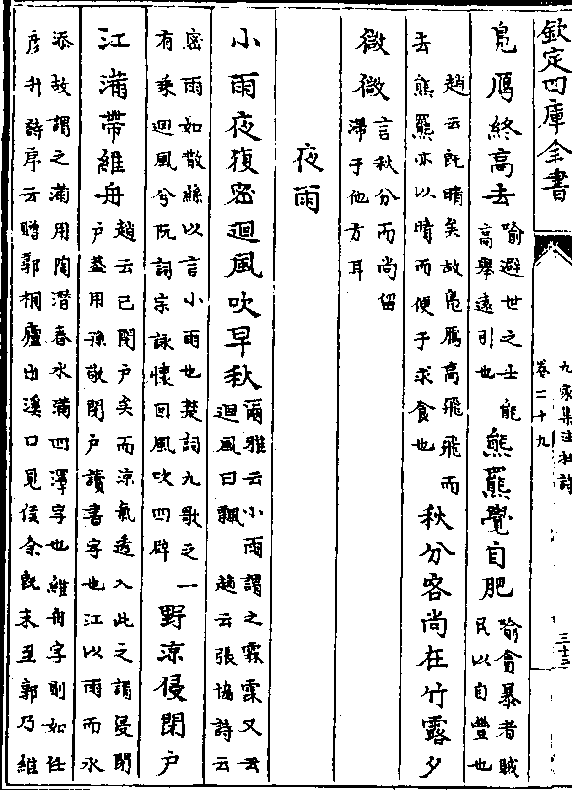 欽定四庫全書
九家集注杜詩
卷二十九
三十三
鳧鴈終高去喻避世之士能高舉遠引也熊羆覺自肥喻貪暴者賊民以自豐也
趙云既晴矣故鳧鴈高飛飛而去熊羆亦以晴而便于求食也秋分客尚在竹露夕
微微言秋分而尚留滯于他方耳
夜雨
小雨夜復密迴風吹早秋爾雅云小雨謂之霡霂又云迴風曰飄趙云張協詩云
密雨如散絲以言小雨也楚詞九歌之一有乘迴風兮阮詞宗詠懷回風吹四壁野涼侵閉户
江滿帶維舟趙云已閉户矣而涼氣透入此之謂侵閉户蓋用孫敬閉户讀書字也江以雨而水
添故謂之滿用陶潛春水滿四澤字也維舟字則如任彦升詩序云贈郭桐廬出溪口見候余既未至郭乃維